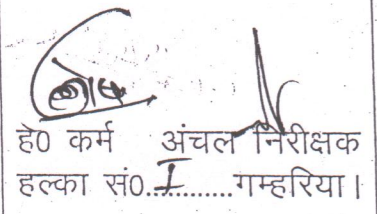 हे0 कर्म अंचल निरीक्षक
हल्का सं0....I........गम्हरिया।